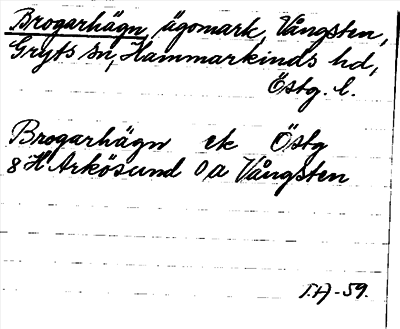 Brogarhägn, ägomark, Vångsten,
Gryts sn, Hammarkinds hd,
Östg. l.
Brogarhägn ek Östg
8 H Arkösund 0 a Vångsten
T.H-59.